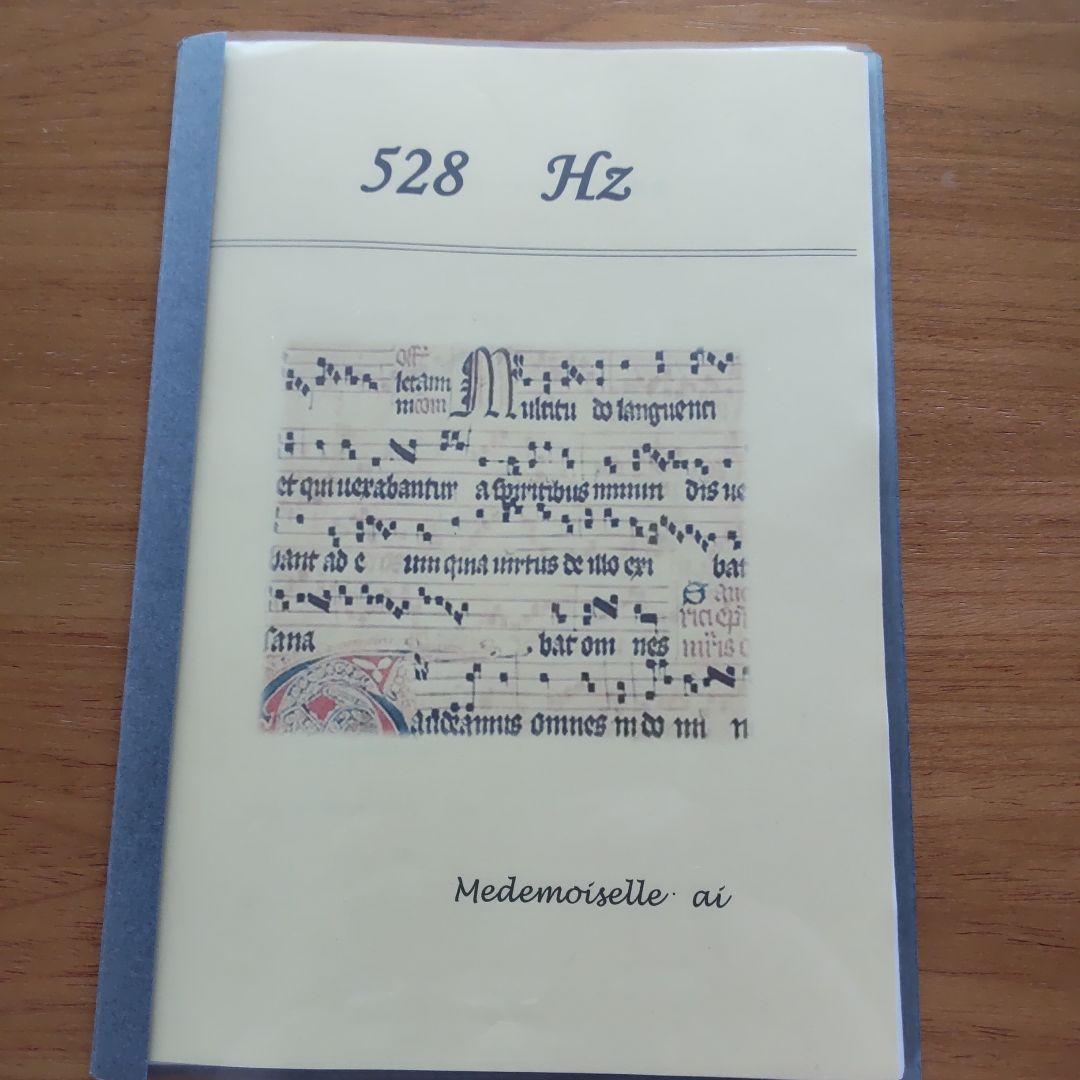 528 Hz
Multitu do languenti
et qui uexabantur a spiritibus inmun dis ue
bant ad e um quia uirtus de illo exi bat
sana bat om nes
audeamus omnes in do mi n
Medemoiselle ai